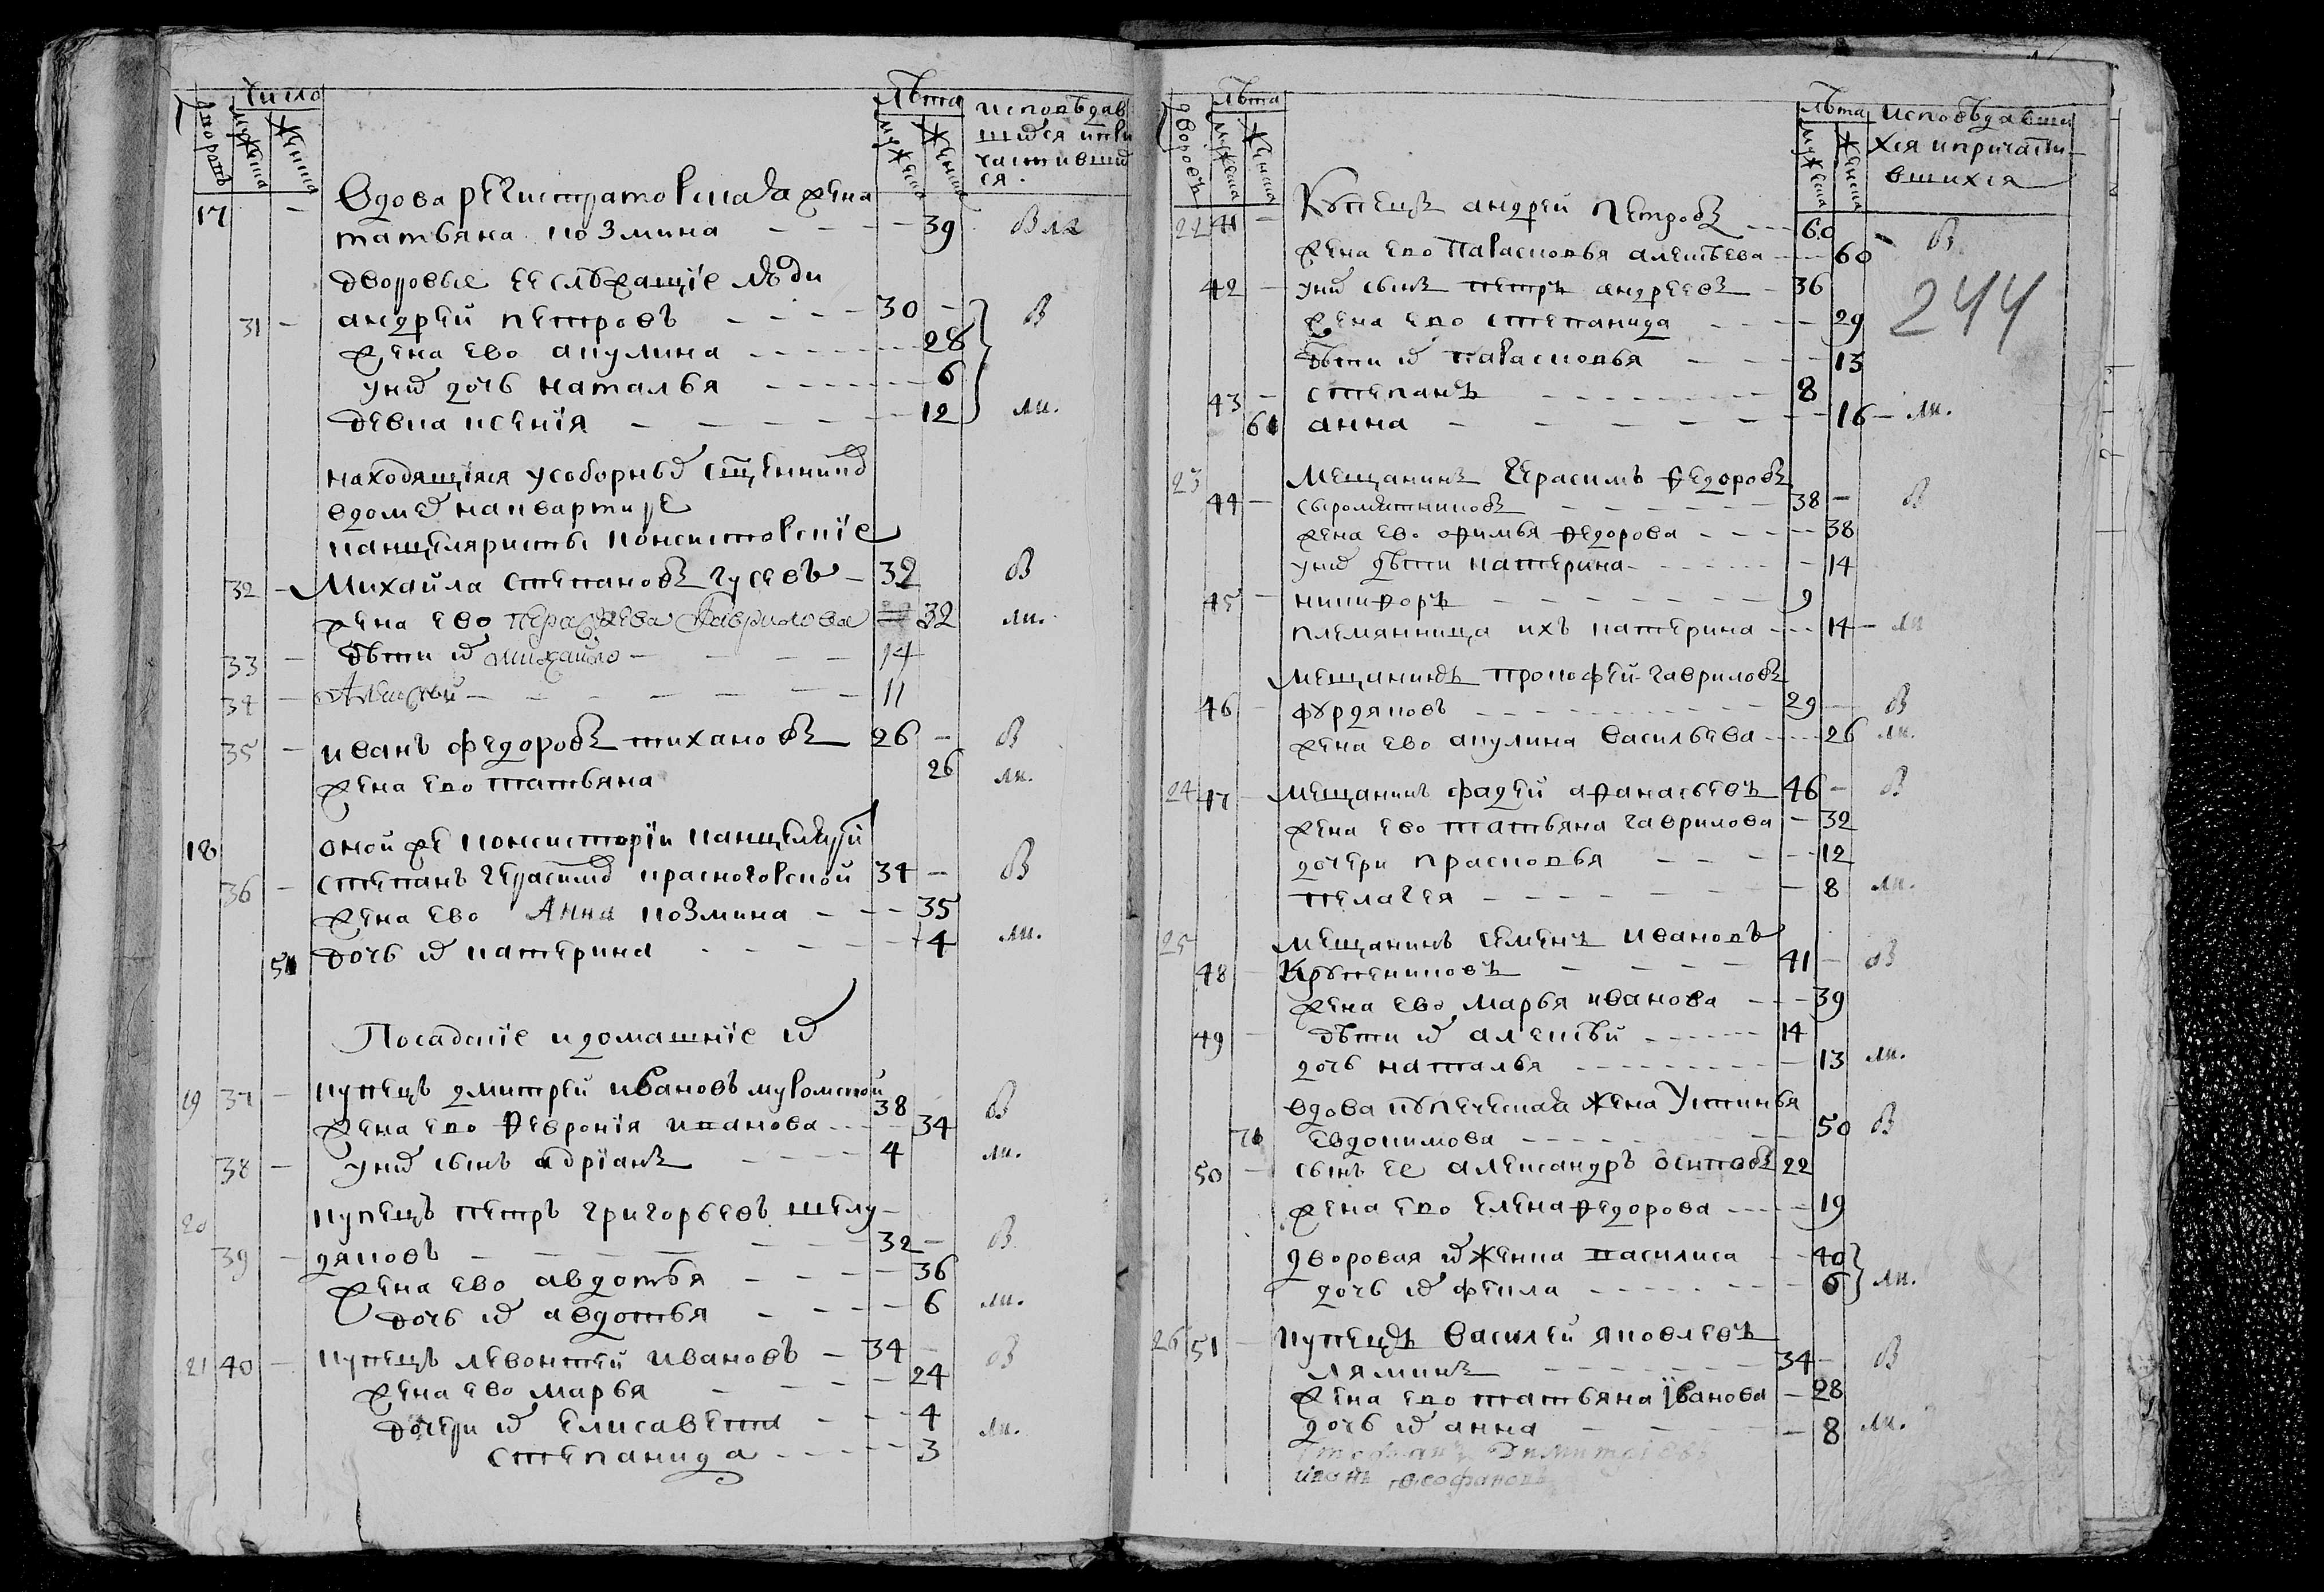 число
лѣта
исповѣдав
дворовъ
мужеска
женска
мужеска
женска
шихся и при
частивших
ся.
17 — вдова регистраторская жена
татьяна козмина — 39 В ли
дворовые ее служащіе люди
31 — андрей петровъ — 30 — В
жена ево акулина — 28
у них дочь наталья — 6
девка ксенія — 12 ли.
находящіяся у соборных сщенников
в домех на квартире
канцеляристы консисторскіе
32 — Михайла степановъ гусевъ — 32 В
жена ево Гаврилова 32 ли.
33 — дѣти их михайло — 14
34 — Алексѣй — 11
35 — иванъ федоровъ тихановъ 26 — В
жена ево татьяна 26 ли.
18 оной же консисторіи
36 — степанъ герасимов красногорской 34 — В
жена ево Анна козмина — 35
5 дочь их катерина — 4 ли.
Посадскіе и домашніе их
19 37 — купецъ дмитрей ивановъ муромской 38 В
жена ево феврония иванова — 34
38 — у них сынъ адріанъ — 4 ли.
20 купецъ петръ григорьевъ шелу-
39 — дяковъ — 32 — В
жена ево авдотья — 36
дочь их авдотья — 6 ли.
21 40 — купецъ левонтей ивановъ — 34 — В
жена ево марья — 24
дочери их елисавета — 4 ли.
степанида — 3
лѣта
дворовъ
мужеска
женска
лѣта
исповѣдавши
мужеска
женска
хся и причасти-
вшихся
22 41 — Купецъ андрей петровъ — 60 — В
жена ево парасковья алексѣева — 60
244
42 — у них сынъ петръ андреевъ — 36
жена ево степанида — 29
дѣти их парасковья — 13
43 — степанъ — 8
6 анна — 16 — ли.
23 мещанинъ герасимъ федоровъ
44 — сыромятниковъ — 38 — В
жена ево офимья федорова — 38
у них дѣти катерина — 14
45 — никифоръ — 9
племянница ихъ катерина — 14 — ли
мещанинъ прокофей гавриловъ
46 — фурдяковъ — 29 — В
жена ево акулина васильева — 26 ли.
24 47 — мещанинъ фадей афанасьевъ 46 — В
жена ево татьяна гаврилова — 32
дочери прасковья — 12
пелагея — 8 ли.
25 мещанинъ семенъ ивановъ
48 — Крутениковъ — 41 — В
жена ево марья иванова — 39
49 — дѣти их алексѣй — 14
дочь наталья — 13 ли.
вдова купеческая жена Устинья
7 евдокимова — 50 В
50 — сынъ ее александръ осиповъ 22
жена ево елена федорова — 19
дворовая их женка василиса — 40
дочь их фекла — 6 ли.
26 51 — купецъ василей яковлевъ
ляминъ — 34 — В
жена ево татьяна іванова — 28
дочь их анна — 8 ли.